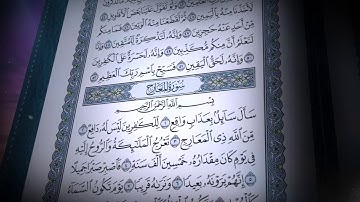 لَأَخَذْنَا مِنْهُ بِٱلْيَمِينِ ٤٥ ثُمَّ لَقَطَعْنَا مِنْهُ ٱلْوَتِينَ ٤٦ فَمَا مِنكُم
مِّنْ أَحَدٍ عَنْهُ حَٰجِزِينَ ٤٧ وَإِنَّهُۥ لَتَذْكِرَةٌ لِّلْمُتَّقِينَ ٤٨ وَإِنَّا
لَنَعْلَمُ أَنَّ مِنكُم مُّكَذِّبِينَ ٤٩ وَإِنَّهُۥ لَحَسْرَةٌ عَلَى ٱلْكَٰفِرِينَ
٥٠ وَإِنَّهُۥ لَحَقُّ ٱلْيَقِينِ ٥١ فَسَبِّحْ بِٱسْمِ رَبِّكَ ٱلْعَظِيمِ ٥٢
سُورَةُ ٱلْمَعَارِجِ
بِسْمِ ٱللَّهِ ٱلرَّحْمَٰنِ ٱلرَّحِيمِ
سَأَلَ سَآئِلٌۢ بِعَذَابٍ وَاقِعٍ ١ لِّلْكَٰفِرِينَ لَيْسَ لَهُۥ دَافِعٌ ٢
مِّنَ ٱللَّهِ ذِى ٱلْمَعَارِجِ ٣ تَعْرُجُ ٱلْمَلَٰٓئِكَةُ وَٱلرُّوحُ إِلَيْهِ
فِى يَوْمٍ كَانَ مِقْدَارُهُۥ خَمْسِينَ أَلْفَ سَنَةٍ ٤ فَٱصْبِرْ صَبْرًا جَمِيلًا
٥ إِنَّهُمْ يَرَوْنَهُۥ بَعِيدًا ٦ وَنَرَىٰهُ قَرِيبًا ٧ يَوْمَ تَكُونُ ٱلسَّمَآءُ